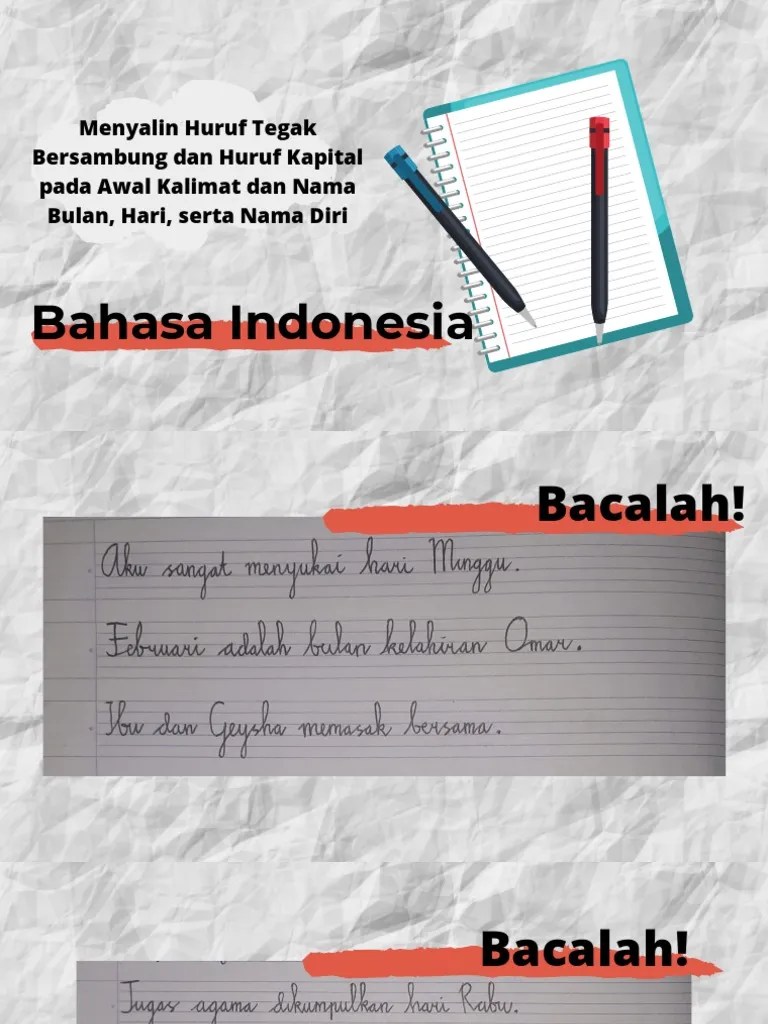 Menyalin Huruf Tegak
Bersambung dan Huruf Kapital
pada Awal Kalimat dan Nama
Bulan, Hari, serta Nama Diri
Bahasa Indonesia
Bacalah!
Aku sangat menyukai hari Minggu.
Februari adalah bulan kelahiran Omar.
Ibu dan Geysha memasak bersama.
Bacalah!
Tugas agama dikumpulkan hari Rabu.